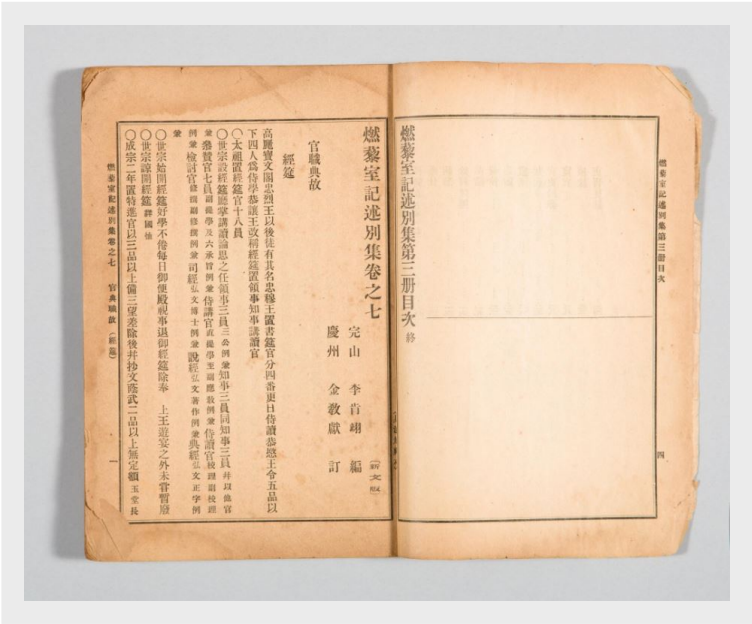 燃藜室記述別集第三册目次
四
燃藜室記述別集第三册目次 終
燃藜室記述別集卷之七
完山 李肯翊 編
慶州 金敎獻 訂
(新文版)
官職典故
經筵
高麗寶文閣忠烈王以後徒有其名忠穆王置書筵官分四番更日侍讀恭愍王令五品以
下四人爲侍學恭讓王改稱經筵置領事知事講讀官
〇太祖置經筵官十八員
〇世宗設經筵廳掌講讀論思之任領事三員三公例兼知事三員同知事三員幷以他官
兼參贊官七員副提學及六承旨例兼侍講官直提學至副應敎例兼侍讀官校理副校理
例兼檢討官修撰副修撰例兼司經弘文博士例兼說經弘文著作例兼典經弘文正字例
兼
〇世宗始開經筵好學不倦每日御便殿視事退御經筵除奉 上王遊宴之外未嘗暫廢
〇世宗諒闇開經筵 詳國恤
〇成宗二年置特進官以三品以上備三望差除後幷抄文蔭武二品以上無定額 玉堂長
燃藜室記述別集卷之七 官職典故 (經筵)
一